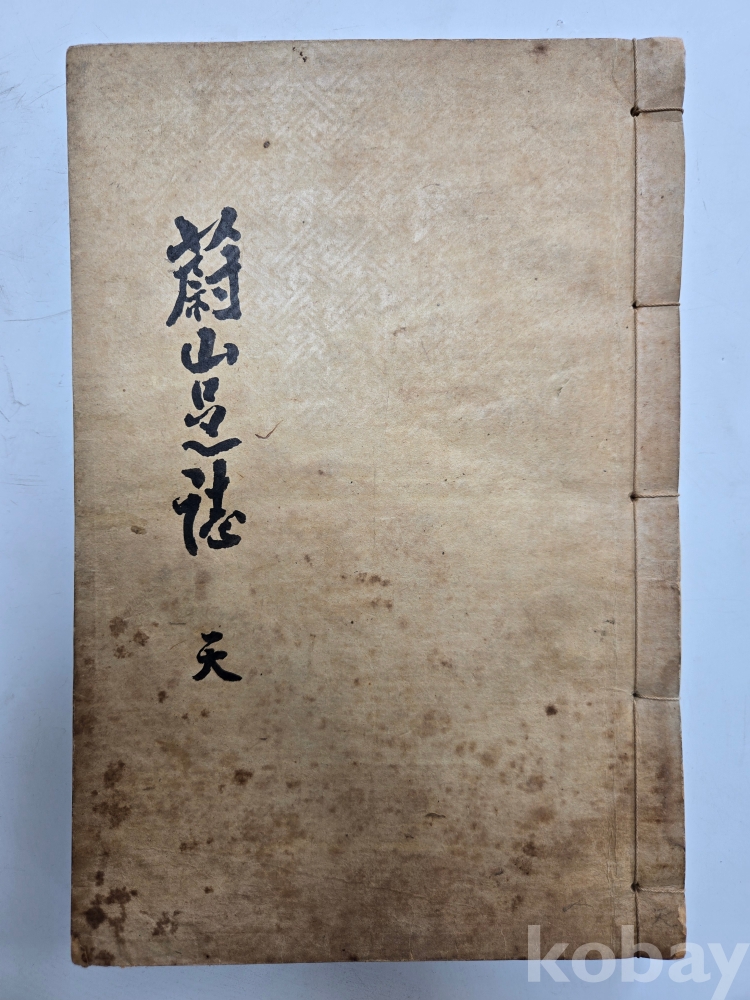 蔚山邑誌
天
kobay